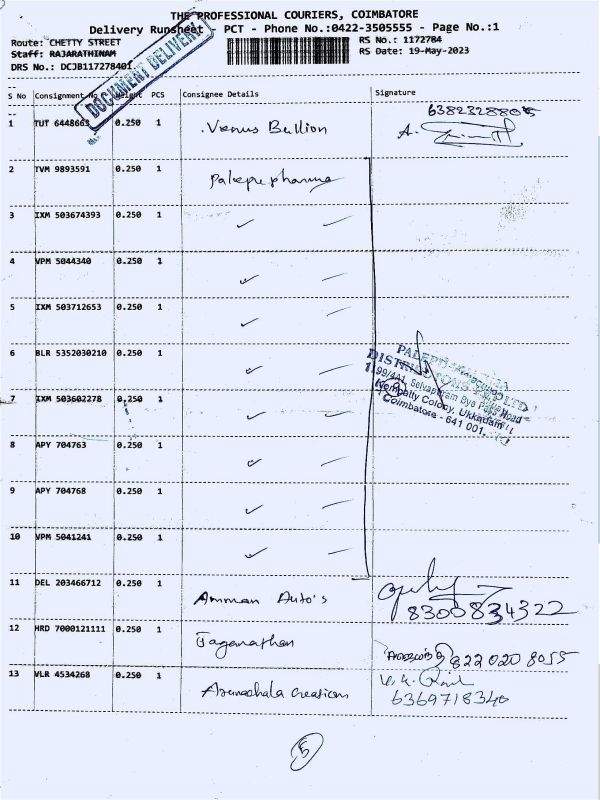 THE PROFESSIONAL COURIERS, COIMBATORE
Delivery Runsheet PCT - Phone No.:0422-3505555 - Page No.:1
Route: CHETTY STREET RS No.: 1172784
Staff: RAJARATHINAM RS Date: 19-May-2023
DRS No.: DCJB117278401
DOCUMENT DELIVERY
S No Consignment No Weight PCS Consignee Details Signature
1 TUT 6448663 0.250 1 Venus Bullion 63823288 A.
2 TVM 9893591 0.250 1 Palepu pharma
3 IXM 503674393 0.250 1
4 VPM 5044340 0.250 1
5 IXM 503712653 0.250 1
6 BLR 5352030210 0.250 1
7 IXM 503602278 0.250 1
PALEPU
DISTRIB LTD
Selvapuram Bye Pass Road
Colony, Ukkadam
Coimbatore - 641 001.
8 APY 704763 0.250 1
9 APY 704768 0.250 1
10 VPM 5041241 0.250 1
11 DEL 203466712 0.250 1 Amman Auto's 8300834322
12 HRD 7000121111 0.250 1 Jaganathan 822 020 8055
13 VLR 4534268 0.250 1 Arunachala creations 6369718340
5